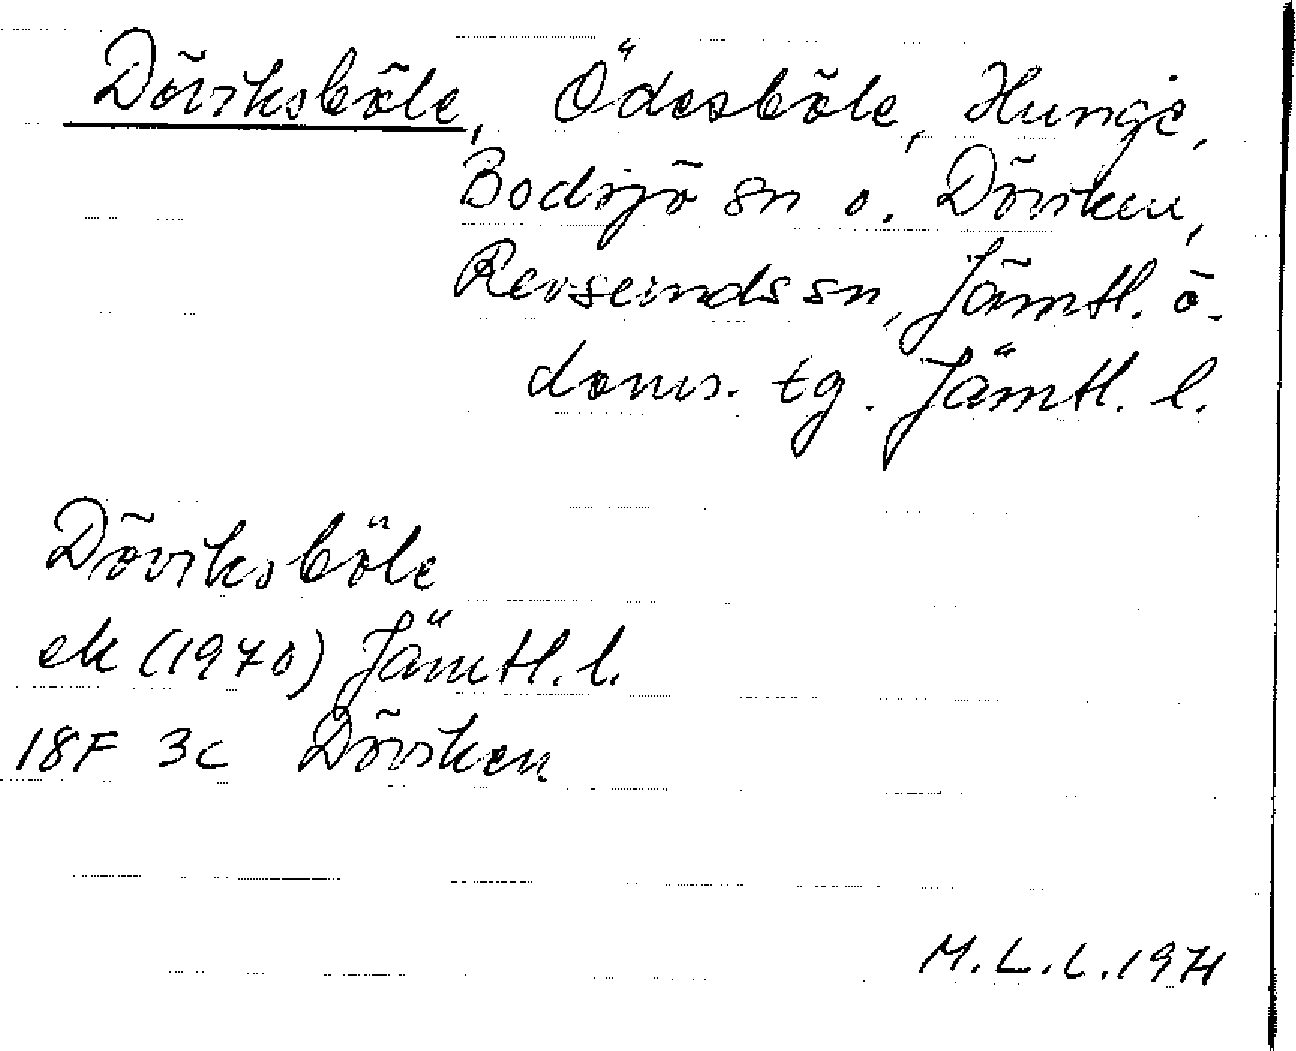 Döviksböle, Ödesböle, Hunge,
Bodsjö sn o. Döviken,
Revsunds sn, Jämtl. ö.
doms. tg. Jämtl. l.
Döviksböle
ek (1970) Jämtl. l.
18F 3c Döviken
M.L.L. 1971